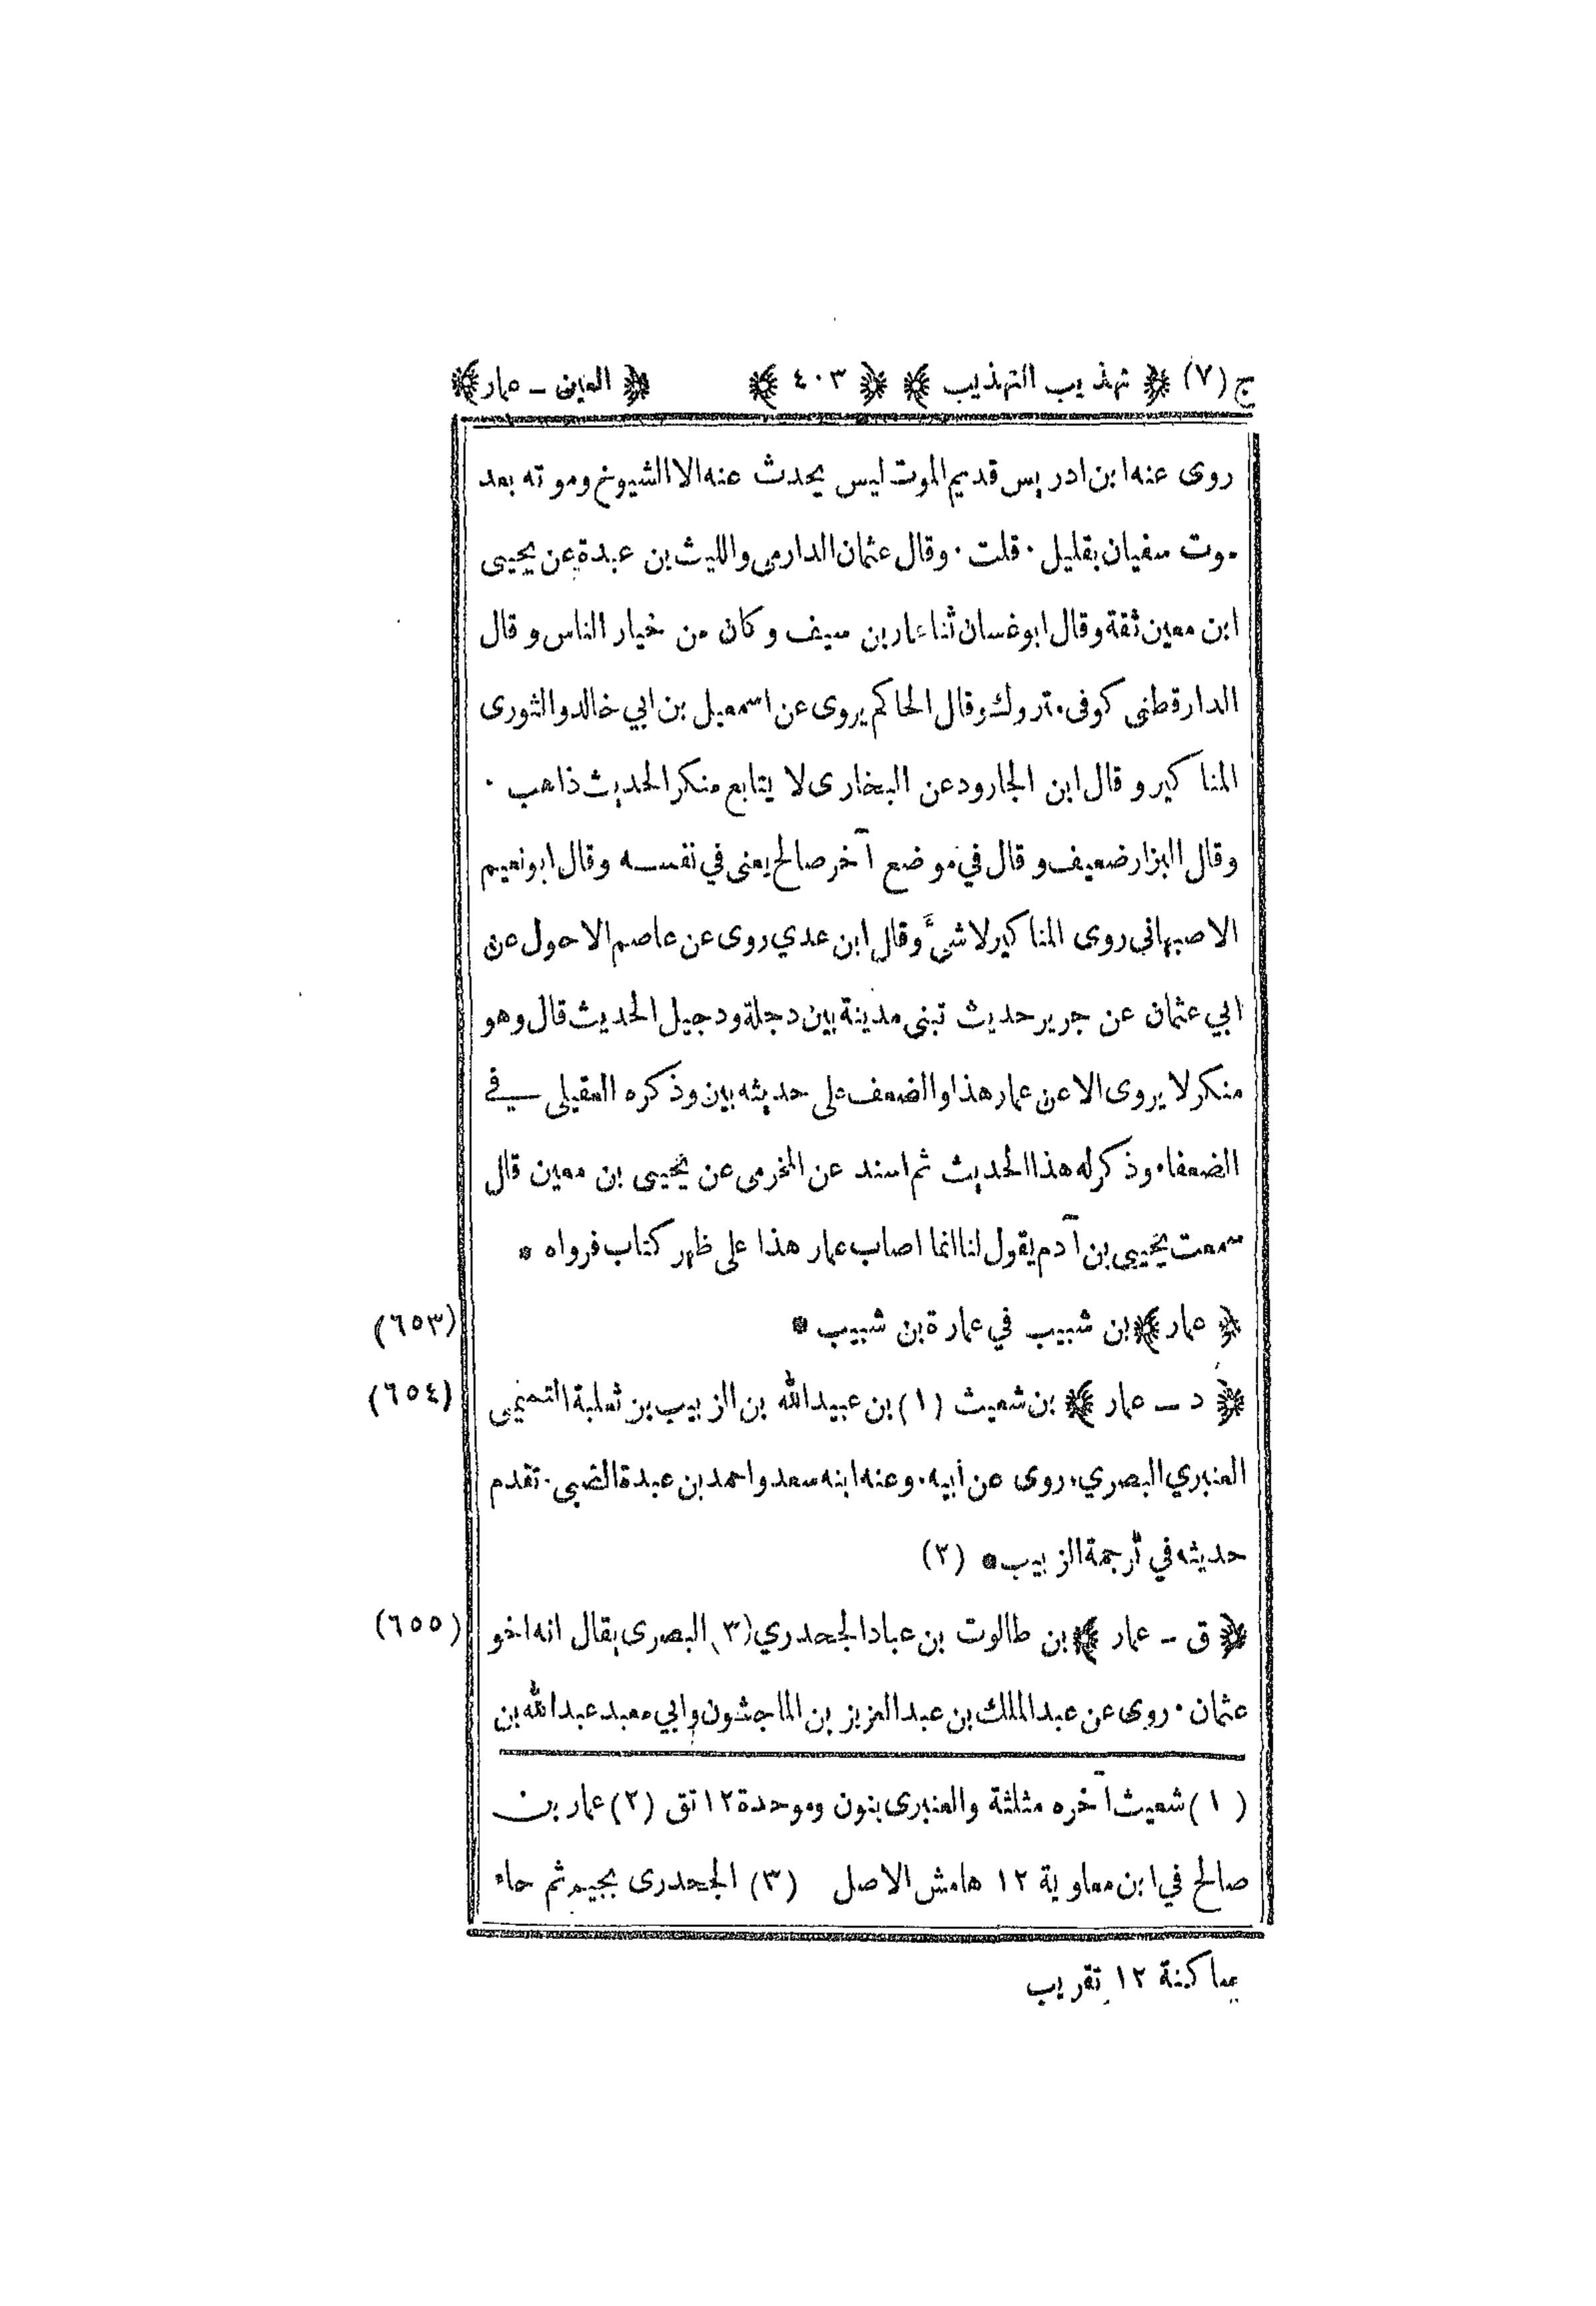 ج (٧) ﴿ تهذيب التهذيب ﴾ ﴿ ٤٠٣ ﴾ ﴿ العين – عمار ﴾
روى عنه ابن ادريس قديم الموت ليس يحدث عنه الا الشيوخ وموته بعد
موت سفيان بقليل ۰ قلت ۰ وقال عثمان الدارمي والليث بن عبدة عن يحيى
ابن معين ثقة وقال ابو غسان ثنا عمار بن سيف وكان من خيار الناس وقال
الدارقطنى كوفى متروك وقال الحاكم يروى عن اسمعيل بن ابي خالد والثورى
المناكير وقال ابن الجارود عن البخارى لا يتابع منكر الحديث ذاهب ۰
وقال البزار ضعيف وقال في موضع آخر صالح يعنى في نفسه وقال ابو نعيم
الاصبهانى روى المناكير لا شئ وقال ابن عدي روى عن عاصم الاحول عن
ابي عثمان عن جرير حديث تبنى مدينة بين دجلة ودجيل الحديث قال وهو
منكر لا يروى الا عن عمار هذا والضعف على حديثه بين وذكره العقيلى في
الضعفاء وذكر له هذا الحديث ثم اسند عن المخرمى عن يحيى بن معين قال
سمعت يحيى بن آدم يقول لنا انما اصاب عمار هذا على ظهر كتاب فرواه *
﴿ عمار ﴾ بن شبيب في عمارة بن شبيب * (٦٥٣)
﴿ د – عمار ﴾ بن شعيث (١) بن عبيد الله بن الزبيب بن ثعلبة التميمى (٦٥٤)
العنبري البصري ۰ روى عن أبيه ۰ وعنه ابنه سعد واحمد بن عبدة الضبى ۰ تقدم
حديثه في ترجمة الزبيب * (٢)
﴿ ق – عمار ﴾ بن طالوت بن عباد الجحدري (٣) البصرى يقال انه اخو (٦٥٥)
عثمان ۰ روى عن عبد الملك بن عبد العزيز بن الماجشون وابي معبد عبد الله بن
(١) شعيث آخره مثلثة والعنبرى بنون وموحدة ١٢ تق (٢) عمار بن
صالح في ابن معاوية ١٢ هامش الاصل (٣) الجحدرى بجيم ثم حاء
ساكنة ١٢ تقريب